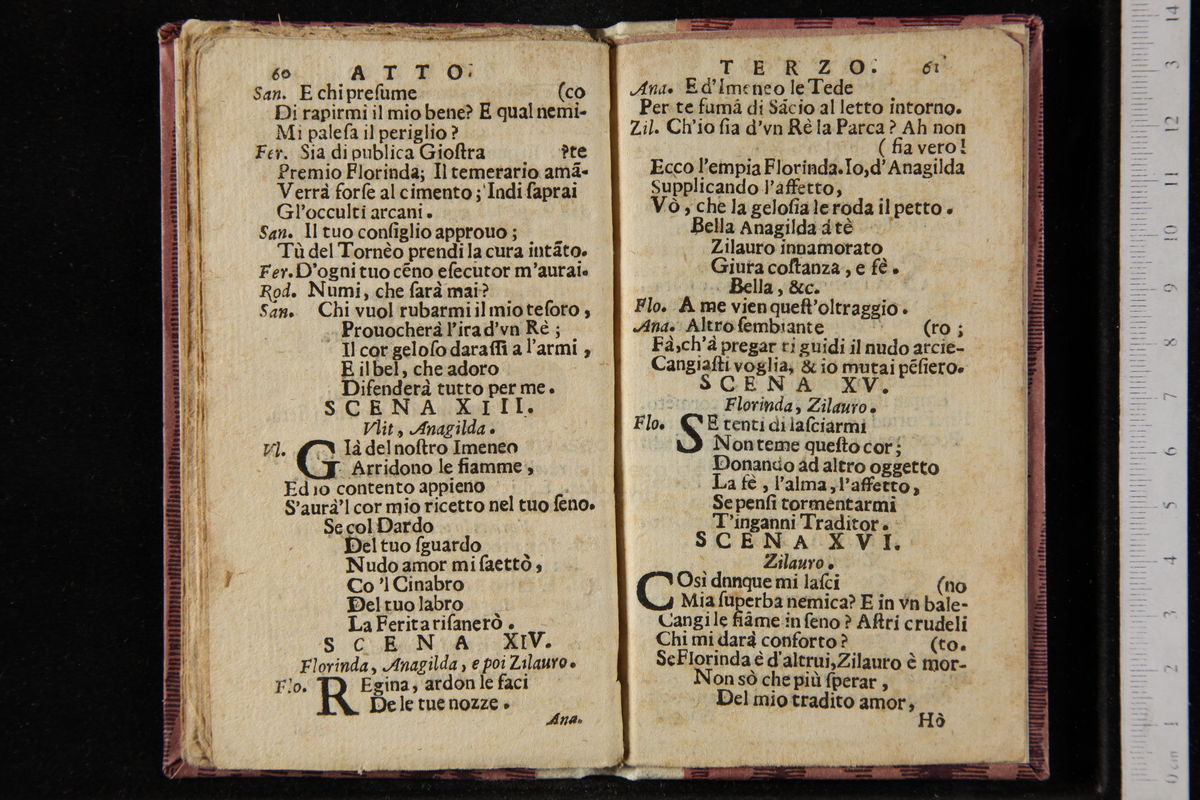 60 ATTO.
San. E chi preſume (co
Di rapirmi il mio bene? E qual nemi-
Mi paleſa il periglio?
Fer. Sia di publica Gioſtra ?te
Premio Florinda; Il temerario amã-
Verrà forſe al cimento; Indi ſaprai
Gl'occulti arcani.
San. Il tuo conſiglio approuo;
Tù del Tornèo prendi la cura intãto.
Fer. D'ogni tuo cẽno eſecutor m'aurai.
Rod. Numi, che ſarà mai?
San. Chi vuol rubarmi il mio teſoro,
Prouocherà l'ira d'vn Rè;
Il cor geloſo daraſſi a l'armi,
E il bel, che adoro
Difenderà tutto per me.
SCENA XIII.
Vlit, Anagilda.
Vl. GIà del noſtro Imeneo
Arridono le fiamme,
Ed io contento appieno
S'aurà'l cor mio ricetto nel tuo ſeno.
Se col Dardo
Del tuo ſguardo
Nudo amor mi ſaettò,
Co 'l Cinabro
Del tuo labro
La Ferita riſanerò.
SCENA XIV.
Florinda, Anagilda, e poi Zilauro.
Flo. REgina, ardon le faci
De le tue nozze.
Ana.
TERZO. 61
Ana. E d'Imeneo le Tede
Per te fumã di Sãcio al letto intorno.
Zil. Ch'io ſia d'vn Rè la Parca? Ah non
(ſia vero!
Ecco l'empia Florinda. Io, d'Anagilda
Supplicando l'affetto,
Vò, che la geloſia le roda il petto.
Bella Anagilda á tè
Zilauro innamorato
Giura coſtanza, e fè.
Bella, &c.
Flo. A me vien queſt'oltraggio.
Ana. Altro ſembiante (ro;
Fà, ch'à pregar ti guidi il nudo arcie-
Cangiaſti voglia, & io mutai pẽſiero.
SCENA XV.
Florinda, Zilauro.
Flo. SE tenti di laſciarmi
Non teme queſto cor;
Donando ad altro oggetto
La fè, l'alma, l'affetto,
Se penſi tormentarmi
T'inganni Traditor.
SCENA XVI.
Zilauro.
COsì dnnque mi laſci (no
Mia ſuperba nemica? E in vn bale-
Cangi le fiãme in ſeno? Aſtri crudeli
Chi mi darà conforto? (to.
Se Florinda è d'altrui, Zilauro è mor-
Non sò che più ſperar,
Del mio tradito amor,
Hò